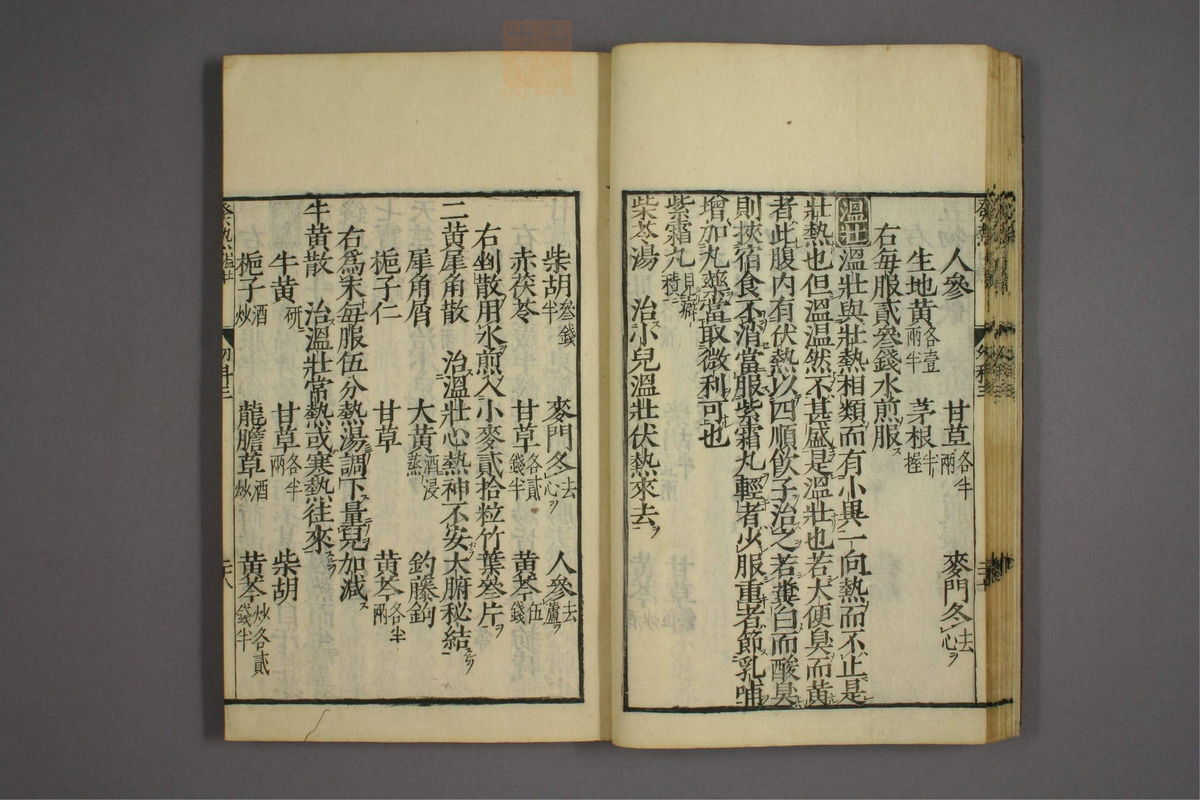 人參　甘草各半兩　麥門冬去心ヲ
生地黃各壹兩半　茅根半握
右每服貳叁錢水煎服ス
溫壯　溫壯與壯熱相類而有小異一向熱而不止是
壯熱也但溫溫然不甚盛是溫壯也若大便臭而黃
者此腹內有伏熱以四順飲子治之若糞白而酸臭
則挾宿食不消當服紫霜丸輕者少服重者節乳哺
增加丸藥當取微利可也
紫霜丸見癖積
柴苓湯　治小兒溫壯伏熱來去
柴胡叁錢半　麥門冬去心ヲ　人參去蘆ヲ
赤茯苓　甘草各貳錢半　黃芩伍錢
右剉散用水煎入小麥貳拾粒竹葉叁片
二黃犀角散　治溫壯心熱神不安大腑秘結
犀角屑　大黃酒浸蒸　釣藤鈎
梔子仁　甘草　黃芩各半兩
右為末每服伍分熱湯調下量兒加減ス
牛黃散　治溫壯常熱或寒熱往來
牛黃研　甘草各半兩　柴胡
梔子酒炒　龍膽草酒炒　黃芩炒各貳錢半